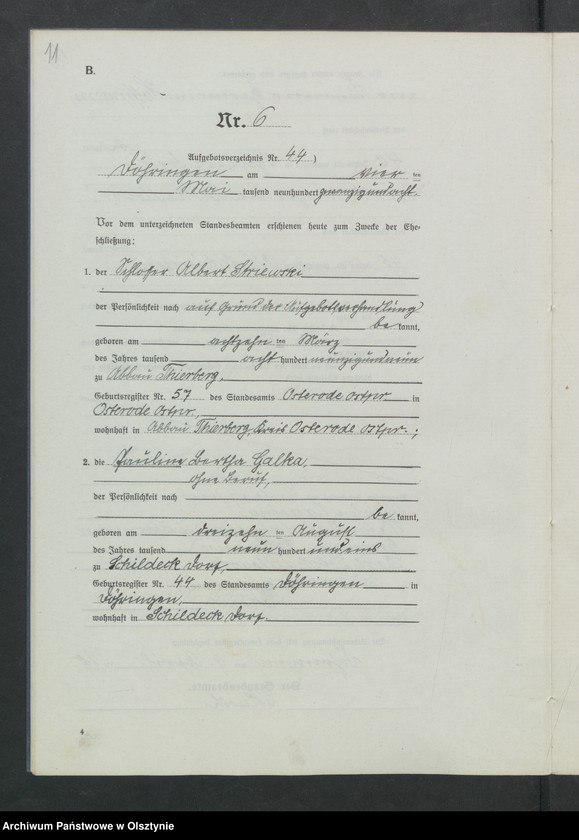 11
B.
Nr. 6
Aufgebotsverzeichnis Nr. 44)
Döhringen am vier ten
Mai tausend neunhundert zwanzigundacht.
Vor dem unterzeichneten Standesbeamten erschienen heute zum Zwecke der Ehe-
schließung:
1. der Schlosser Albert Striewski
der Persönlichkeit nach auf Grund der Aufgebotsverhandlung
be kannt,
geboren am achtzehn ten März
des Jahres tausend acht hundert neunzigundneun
zu Abbau Thierberg,
Geburtsregister Nr. 57 des Standesamts Osterode Ostpr in
Osterode Ostpr.,
wohnhaft in Abbau Thierberg, Kreis Osterode Ostpr.;
2. die Pauline Bertha Galka,
ohne Beruf,
der Persönlichkeit nach
be kannt,
geboren am dreizehn ten August
des Jahres tausend neun hundert undeins
zu Schildeck Dorf,
Geburtsregister Nr. 44 des Standesamts Döhringen in
Döhringen,
wohnhaft in Schildeck Dorf.
4
Archiwum Państwowe w Olsztynie